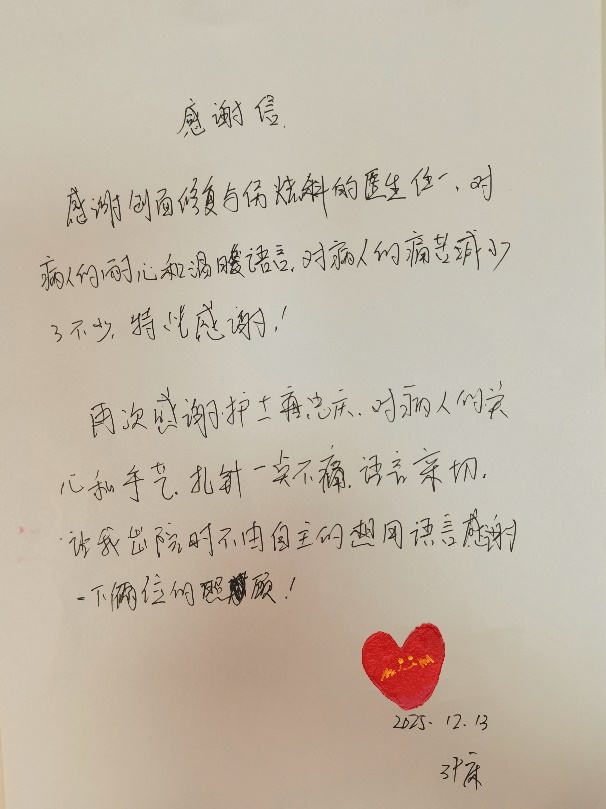 感谢信
感谢创面修复与伤烧科的医生任一、对
病人的耐心和温暖语言,对病人的痛苦减少
了不少,特此感谢!
再次感谢护士 庆、对病人的关
心和手艺,扎针一点不痛,语言亲切,
让我出院时不由自主的想用语言感谢
一下俩位的照顾!
2025.12.13
床